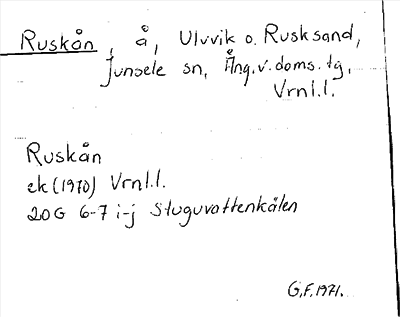 Ruskån, å, Uluvik o. Rusksand,
Junsele sn, Ång. v. doms. tg,
Vrnl.l.
Ruskån
ek (1970) Vrnl.l.
20G 6-7 i-j Stuguvattenkålen
G.F. 1971.